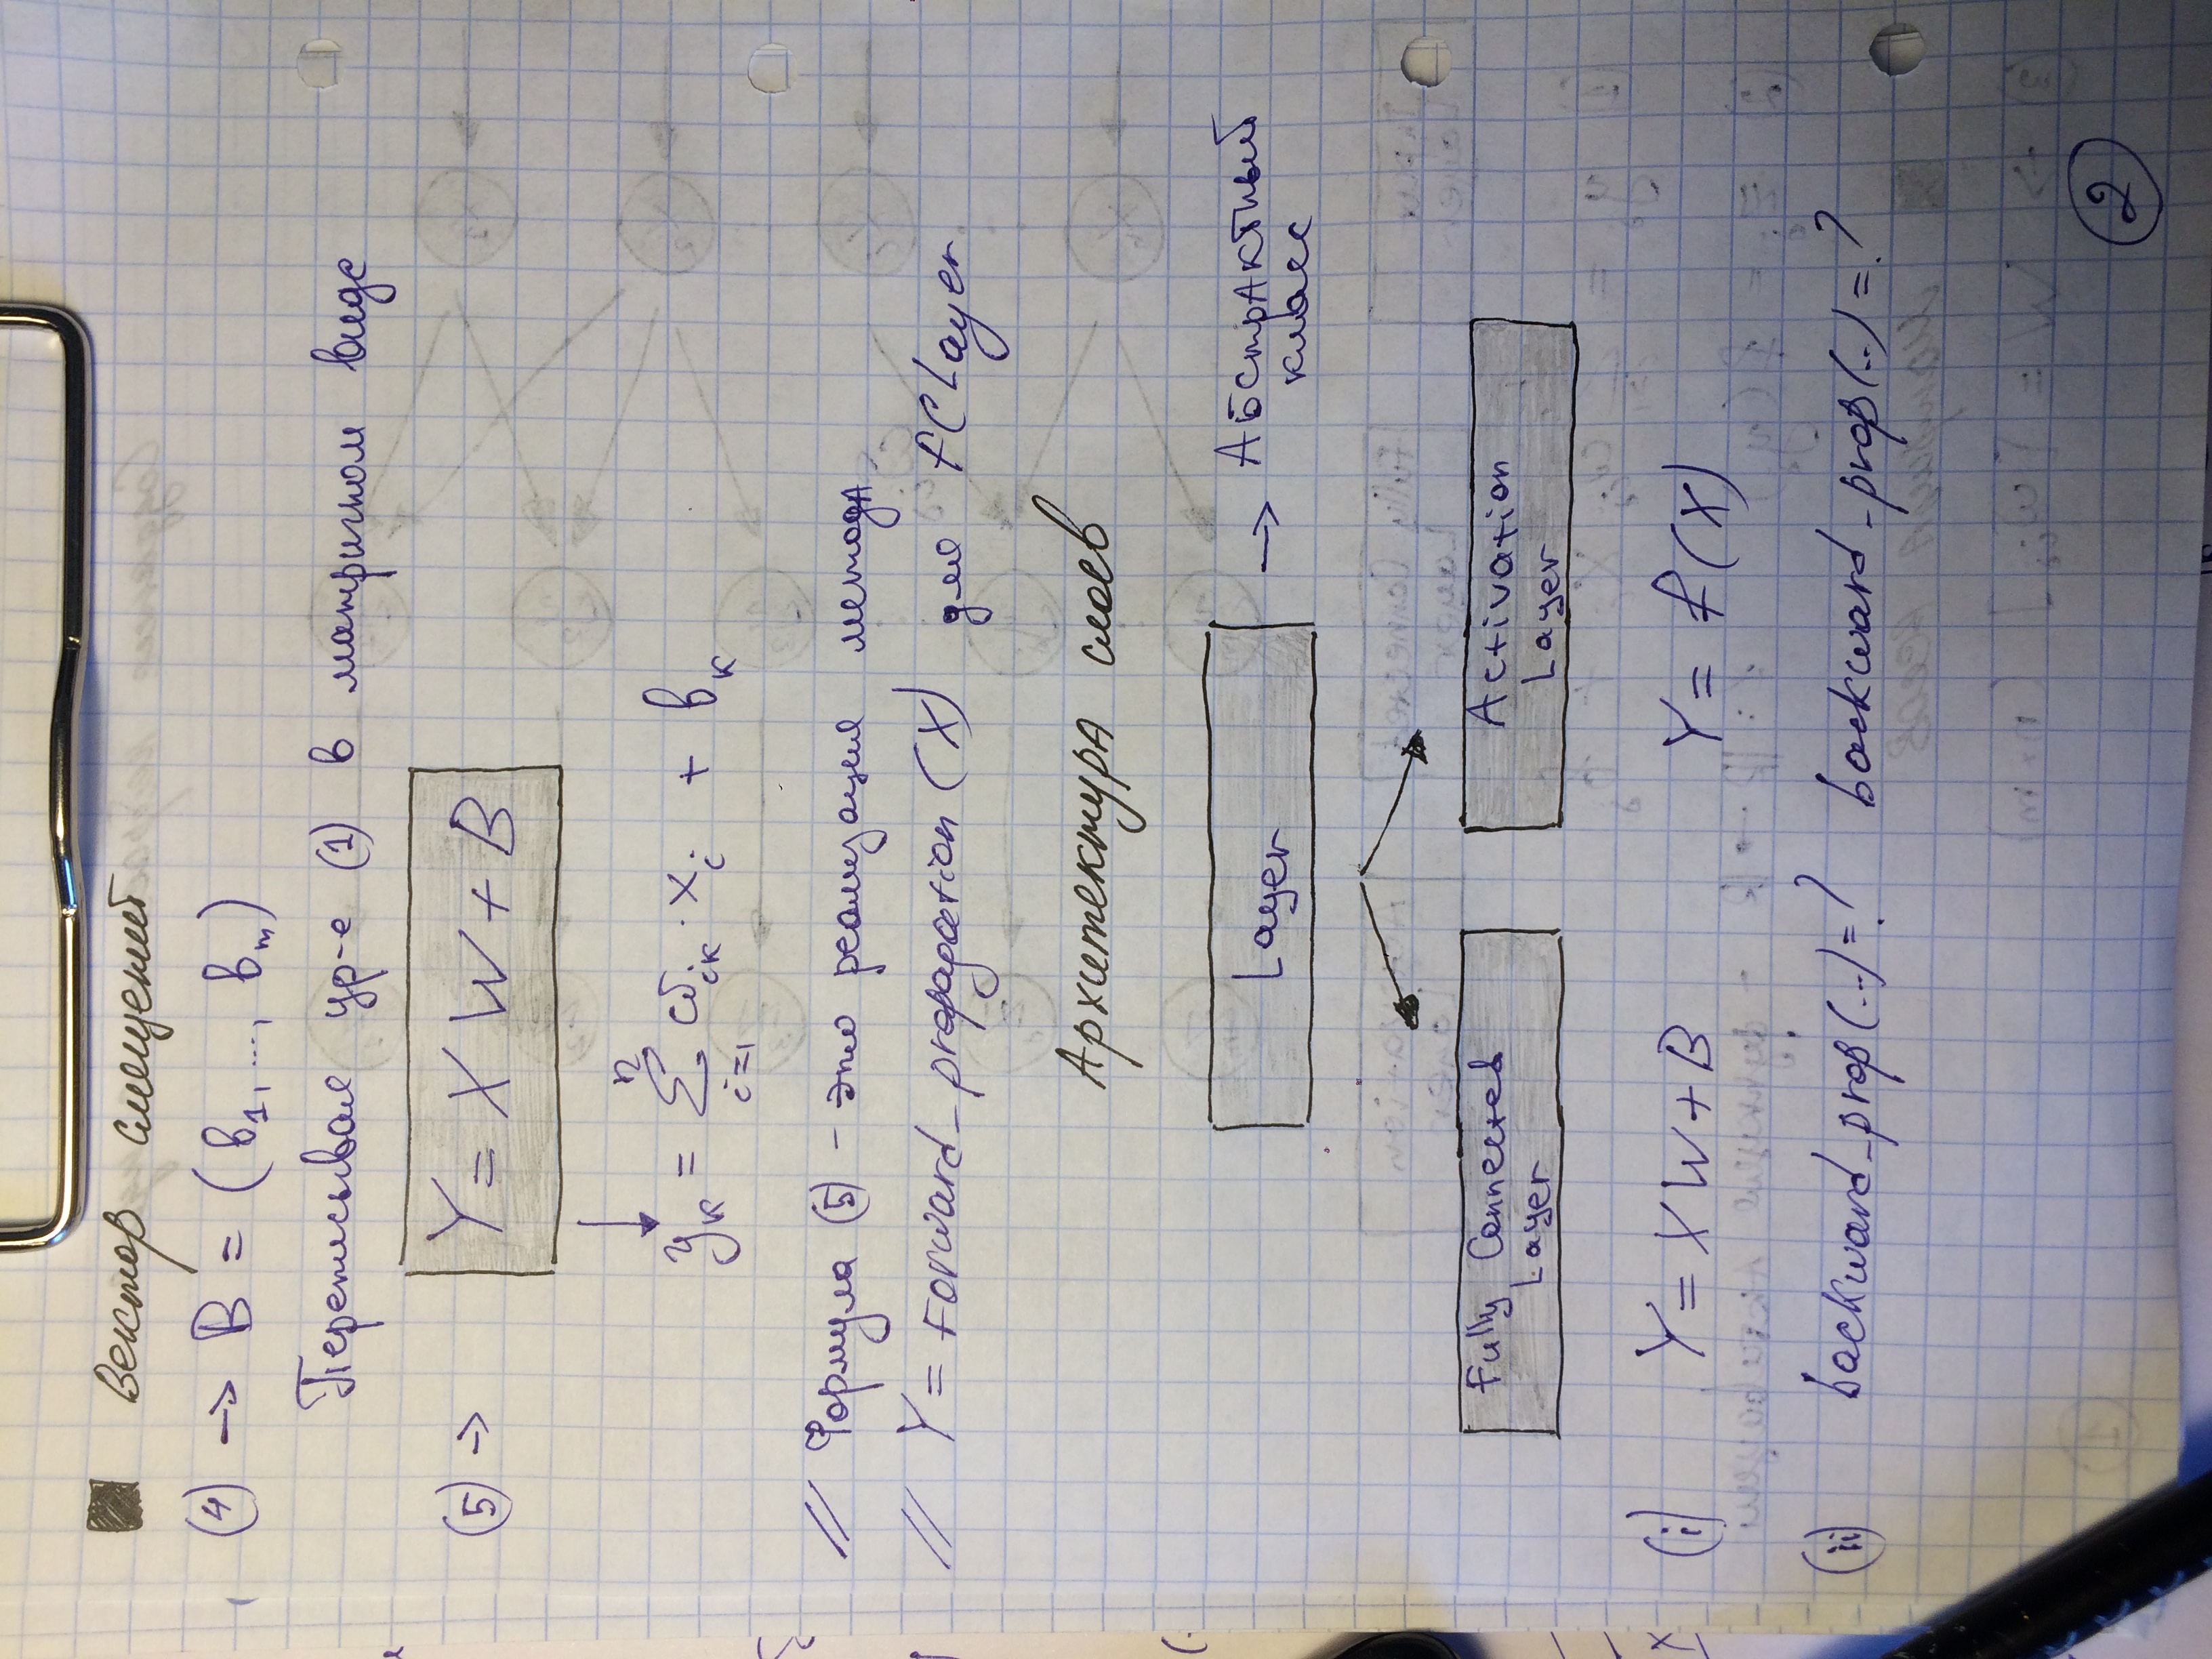 Вектор смещений
(4) → B = (b₁, ..., bₘ)
Переписывая ур-е (1) в матричном виде
(5) → Y = X W + B
yₖ = ∑ⁿᵢ₌₁ ωᵢₖ · xᵢ + bₖ
// Формула (5) - это реализация метода
// Y = Forward_propagation (X) для FCLayer
Архитектура слоев
Layer → Абстрактный
класс
Fully Connected
Layer
Activation
Layer
(i) Y = X W + B Y = f(X)
(ii) backward_prop(...) = ? backward_prop(...) = ?
2